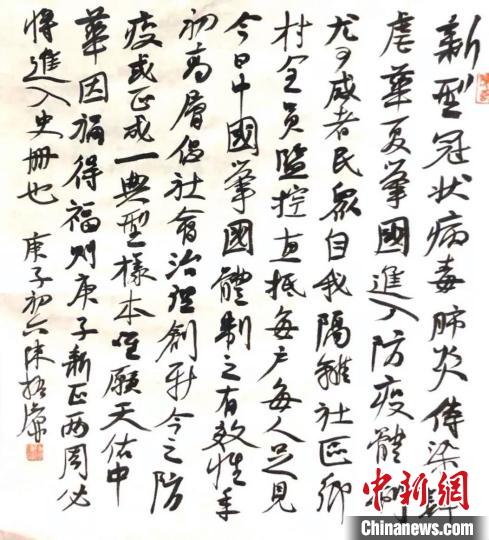 新型冠状病毒肺炎傳染肆
虐華夏舉國進入防疫體制
尤可感者民眾自我隔離社區鄉
村全員監控直抵每户每人足見
今日中國舉國體制之有效性年
初高層倡社會治理創新今之防
疫或正成一典型樣本唯願天佑中
華因禍得福则庚子新正两周必
將進入史冊也 庚子初六陳振濂
中新網
Chinanews.com